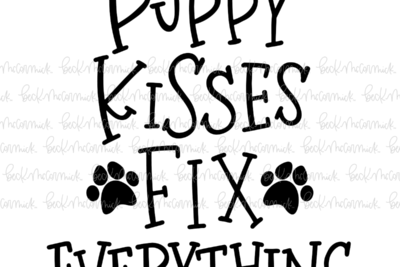 PUPPY
KiSSES
FiX
EVERYTHING